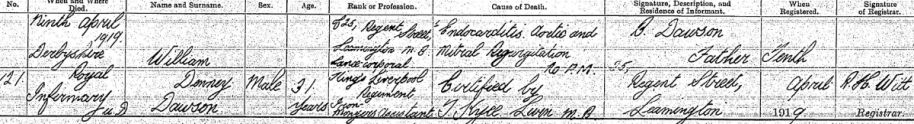 No.
When and Where Died.
Name and Surname.
Sex.
Age.
Rank or Profession.
Cause of Death.
Signature, Description, and Residence of Informant.
When Registered.
Signature of Registrar.
121
Ninth April
1919
Derbyshire
Royal
Infirmary
William
Denney
Dawson
Male
31
Years
25, Regent
Street,
Leamington
Lance Corporal
King's Liverpool
Regiment
Iron-
mongers assistant
Endocarditis. Aortic and
Mitral Regurgitation
No P.M.
Certified by
M.B.
B. Dawson
Father
25,
Regent Street,
Leamington
Tenth
April
1919
Registrar.